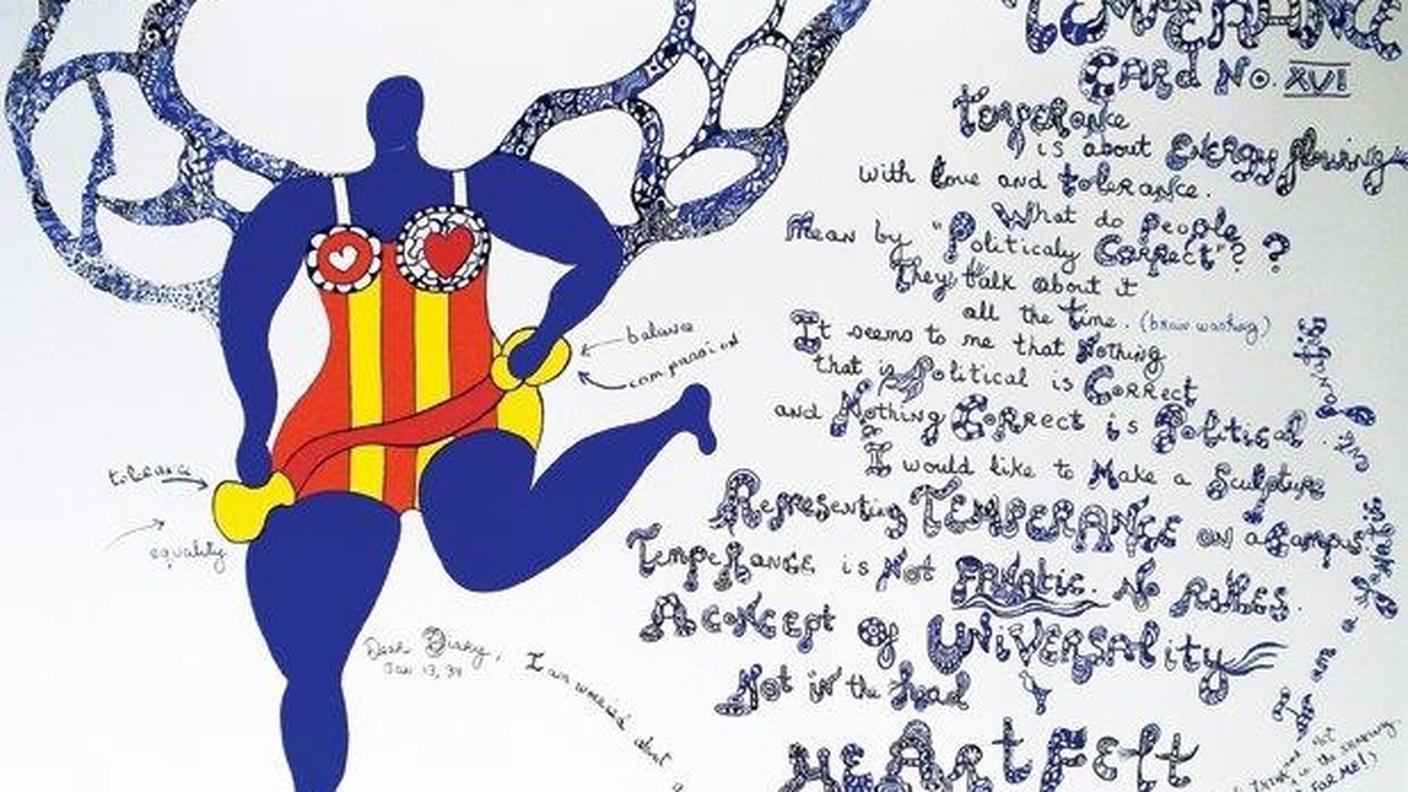 TEMPERANCE
CARd No. XVI
TempeRanke
is about ENERGY flowing
with love and toleRance.
What do people
Mean by "Politicaly CoRRect"? ?
They talk about it
all the time. (brain washing)
It seems to me that Nothing
that is Political is CoRRect
and Nothing CoRRect is Political.
I would like to Make a Sculpture
Representing TEMPERANCE on a Campus
TempeRANCE is Not FANAtic. No RULES.
A CONCEPT of UNIVERSALITY
Not in the head
HEARt FELt
balance
compassion
equality
Dear Diary,
Jan 13, 94
I am worried about
I am a
fanatic
FOR ME!)